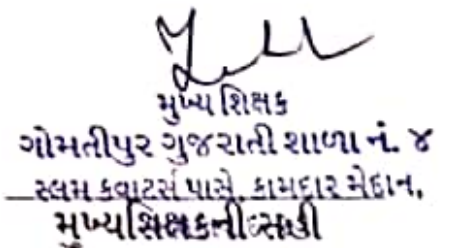 મુખ્ય શિક્ષક
ગોમતીપુર ગુજરાતી શાળા નં. ૪
સ્લમ કવાટર્સ પાસે, કામદાર મેદાન,
મુખ્યશિક્ષકની સહી